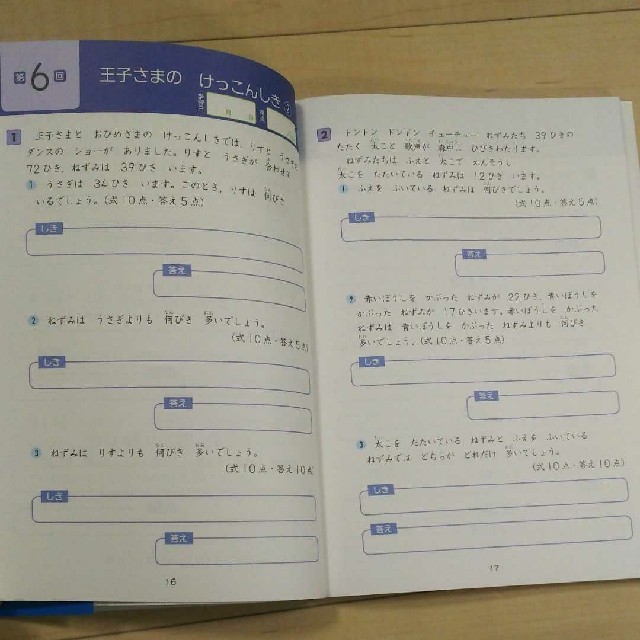 第6回
王子さまの けっこんしき③
1 王子さまと おひめさまの けっこんしきでは、りすと うさぎの
ダンスの ショーが ありました。りすと うさぎが 合わせて
72ひき、ねずみは 39ひき います。
1 うさぎは 34ひき います。このとき、りすは 何びき
いるでしょう。(式10点・答え5点)
しき
答え
2 ねずみは うさぎよりも 何びき 多いでしょう。
(式10点・答え5点)
しき
答え
3 ねずみは りすよりも 何びき 多いでしょう。
(式10点・答え10点)
しき
答え
16
2 トントン ドンドン チューチュー ねずみたち 39ひきの
たたく 太こと 歌声が ひびきわたります。
ねずみたちは ふえと 太こで えんそうし、
太こを たたいている ねずみは 12ひき います。
1 ふえを ふいている ねずみは 何びきでしょう。
(式10点・答え5点)
しき
答え
2 赤いぼうしを かぶった ねずみが 22ひき、青いぼうしを
かぶった ねずみが 17ひきいます。赤いぼうしを かぶった
ねずみは 青いぼうしを かぶった ねずみよりも 何びき
多いでしょう。(式10点・答え5点)
しき
答え
3 太こを たたいている ねずみと ふえを ふいている
ねずみでは どちらが どれだけ 多いでしょう。
(式10点・答え10点)
しき
答え
17